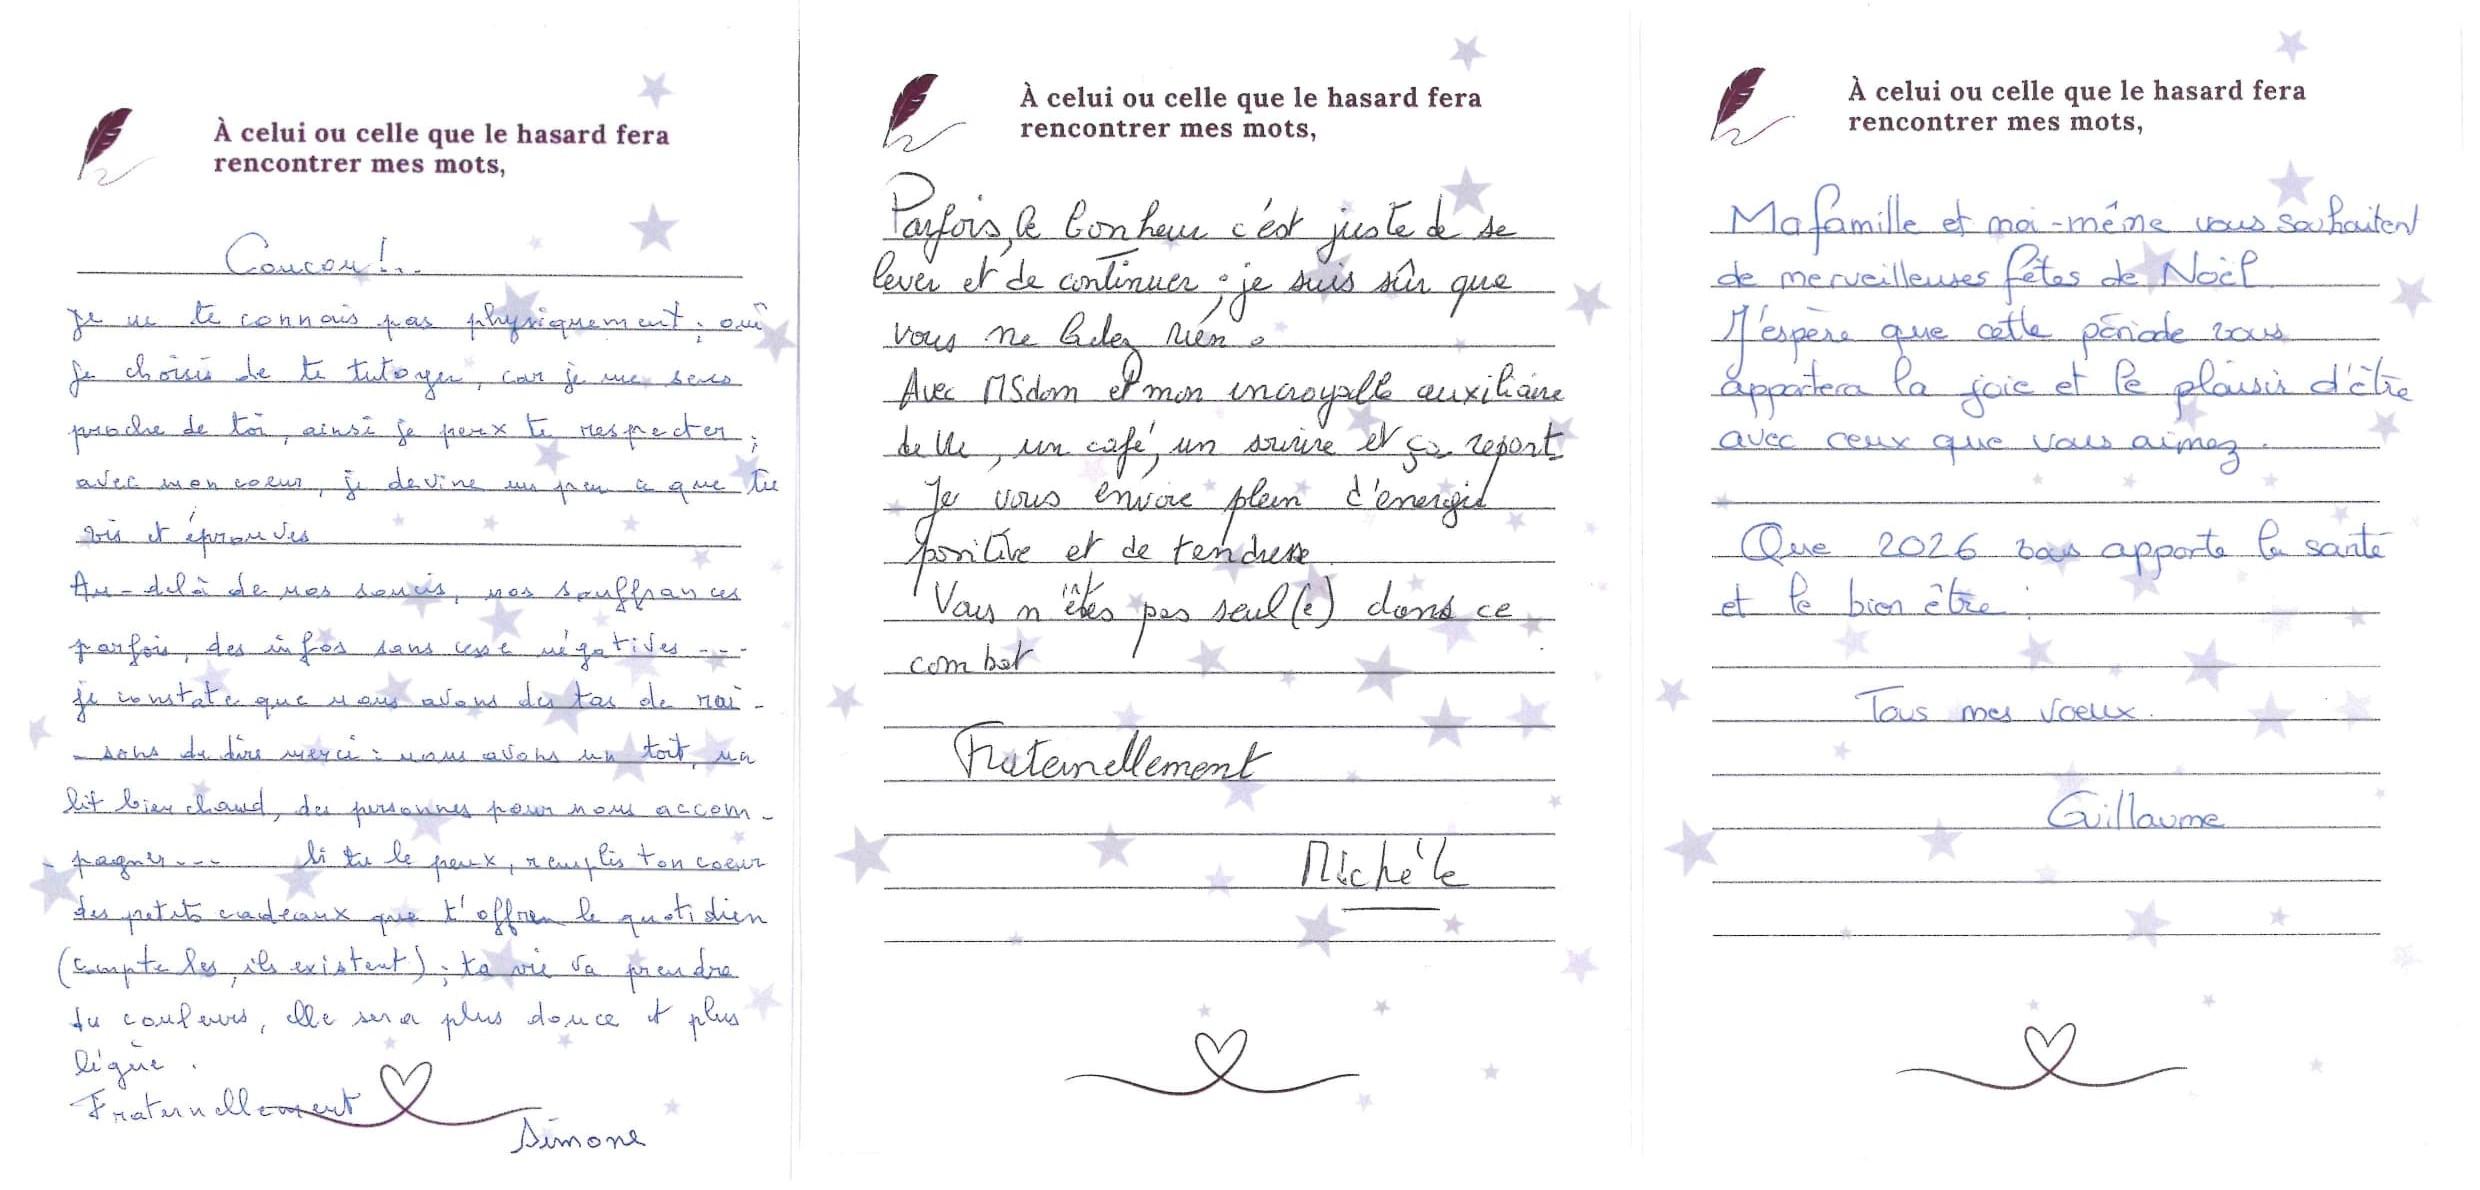 À celui ou celle que le hasard fera
rencontrer mes mots,
Coucou !..
je ne te connais pas physiquement ; oui
je choisis de te tutoyer, car je me sens
proche de toi, ainsi je peux te respecter ;
avec mon coeur, je devine un peu ce que tu
vis et éprouves
Au-delà de nos soucis, nos souffrances
parfois, des infos sans cesse négatives ---
je constate que nous avons des tas de rai-
-sons de dire merci : nous avons un toit, un
lit bien chaud, des personnes pour nous accom-
-pagner --- Si tu le peux, remplis ton coeur
des petits cadeaux que t'offren le quotidien
(compte les, ils existent) ; ta vie va prendre
du couleurs, elle sera plus douce et plus
légère.
Fraternellement
Simone
À celui ou celle que le hasard fera
rencontrer mes mots,
Parfois, le bonheur c'est juste de se
lever et de continuer ; je suis sûr que
vous ne lâchez rien.
Avec MSdom et mon incroyable auxiliaire
de vie, un café, un sourire et ça repart
Je vous envoie plein d'énergie
positive et de tendresse
Vous n'êtes pas seul(e) dans ce
combat
Fraternellement
Michéle
À celui ou celle que le hasard fera
rencontrer mes mots,
Ma famille et moi-même vous souhaitent
de merveilleuses fêtes de Noël
J'espère que cette période vous
apportera la joie et le plaisir d'être
avec ceux que vous aimez.
Que 2026 vous apporte la santé
et le bien être.
Tous mes voeux.
Guillaume